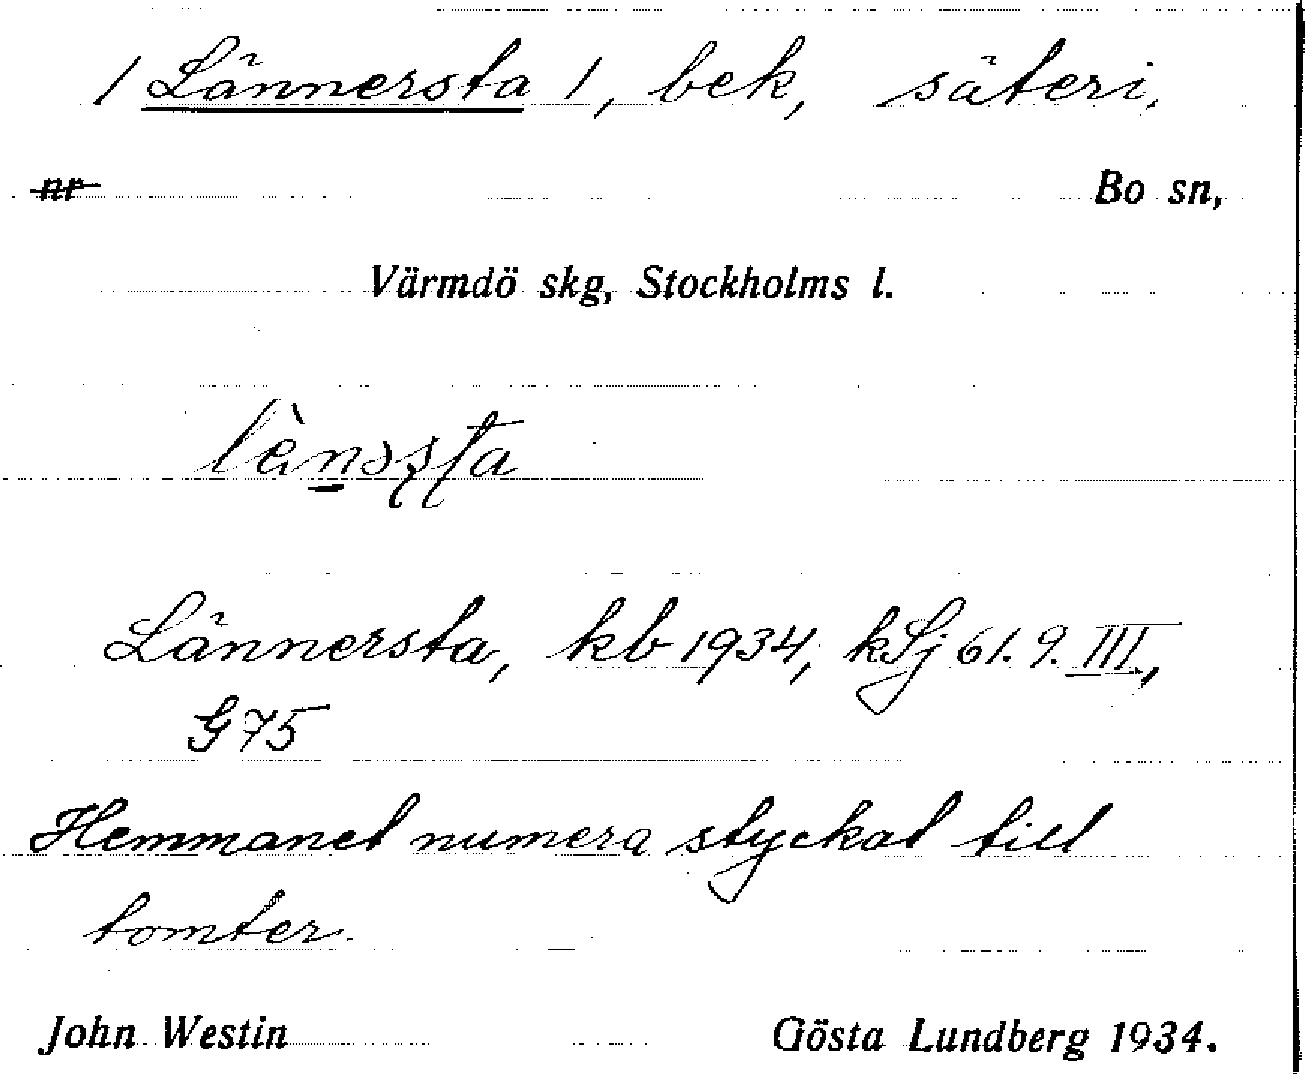 1 Lännersta 1, bek, säteri,
nr Bo sn,
Värmdö skg, Stockholms l.
Lännersta, kb 1934, kSj 61. 9. III,
G 75
Hemmanet numera styckat till
tomter.
John Westin Gösta Lundberg 1934.